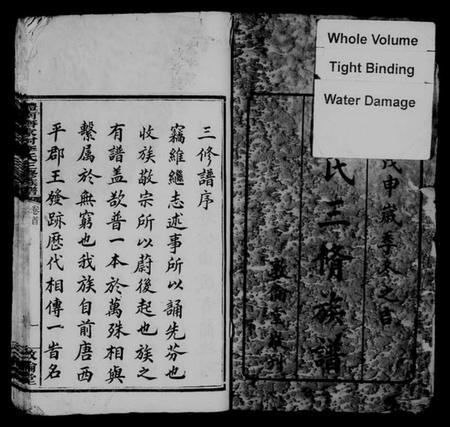 Whole Volume
Tight Binding
Water Damage
戊申歲季冬之吉
氏三脩族譜
敦倫堂
三修譜序
竊維繼志述事所以誦先芬也
收族敬宗所以蔚後起也族之
有譜盖欲普一本於萬殊相與
繫属於無窮也我族自前唐西
平郡王發跡歷代相傳一皆名
氏三修族譜
卷首
一
敦倫堂